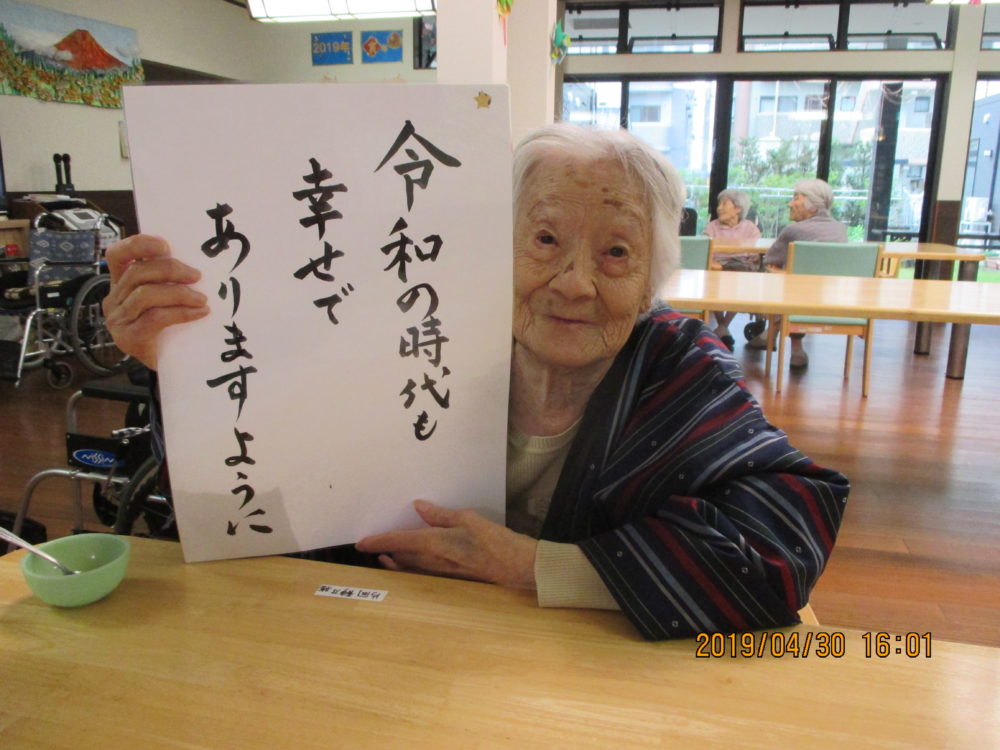 2019年
令和の時代も
幸せで
ありますように
NISSIN
2019/04/30 16:01